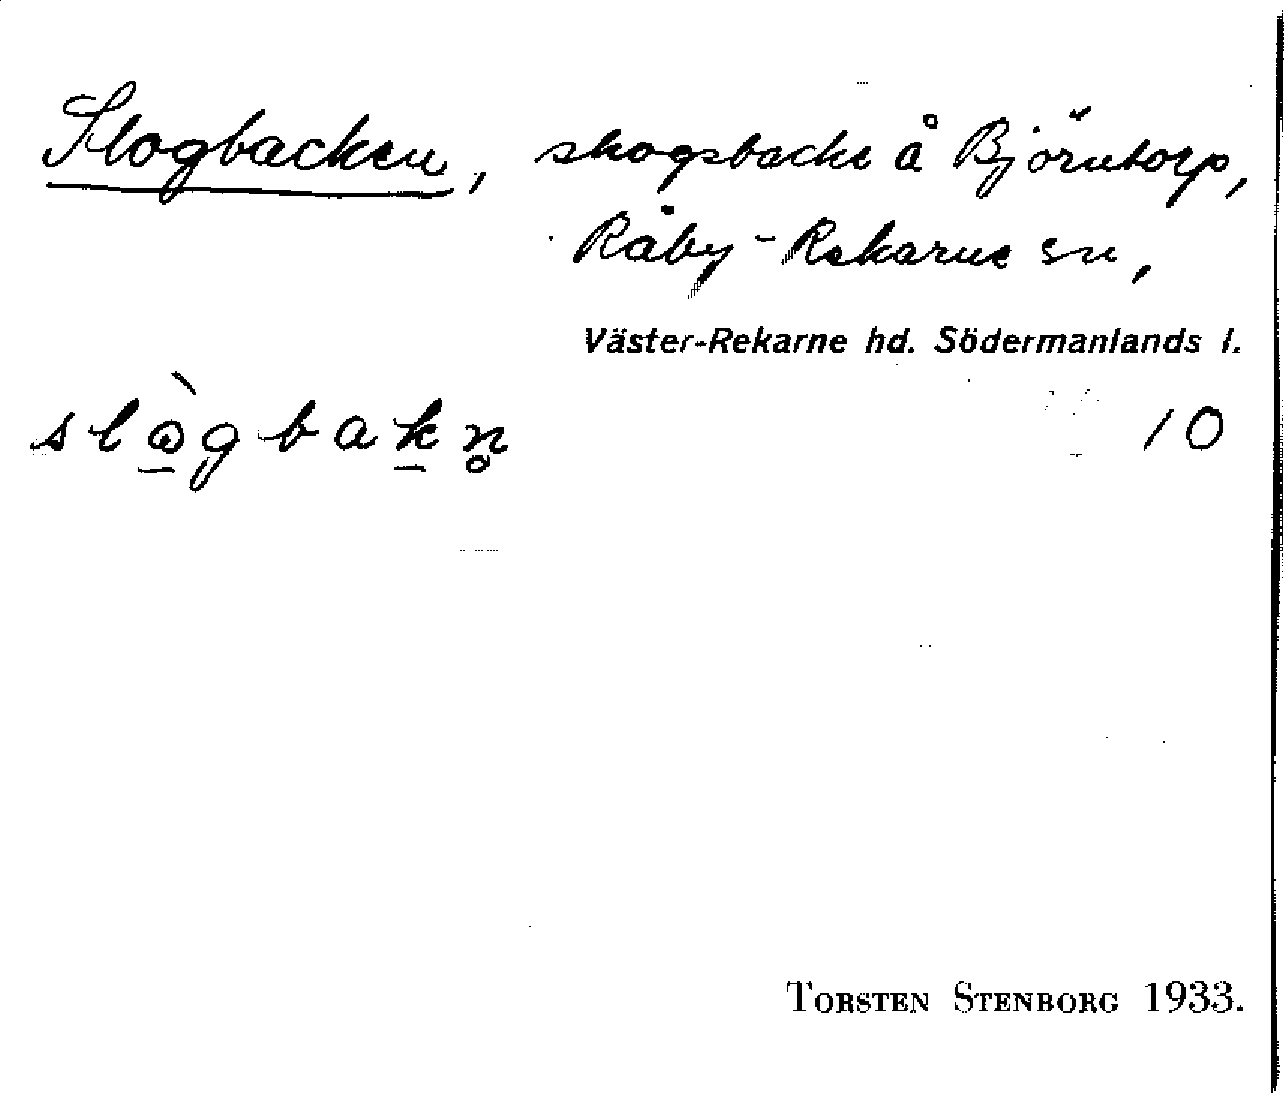 Slogbacken, skogsbacke å Björntorp,
Råby-Rekarne sn,
Väster-Rekarne hd. Södermanlands l.
slò̱gbaḵn̥ 10
TORSTEN STENBORG 1933.